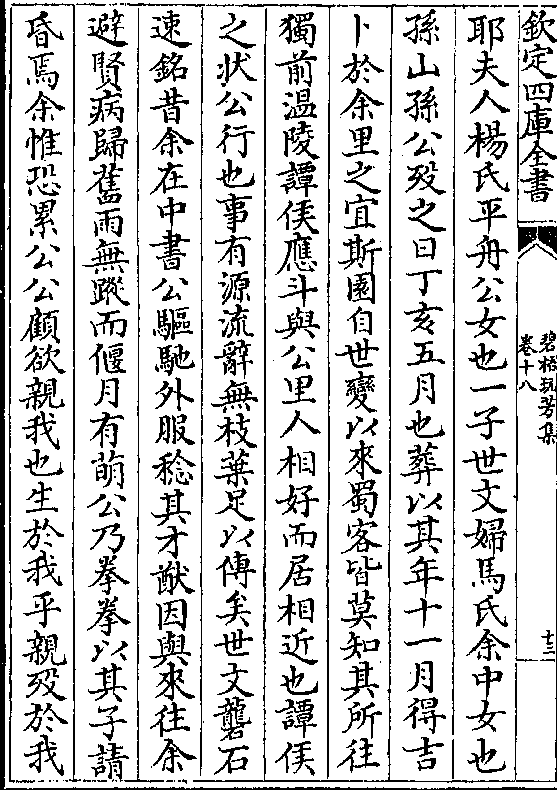 欽定四庫全書
碧梧玩芳集
卷十八
十三
耶夫人楊氏平舟公女也一子世文婦馬氏余中女也
孫山孫公殁之日丁亥五月也葬以其年十一月得吉
卜於余里之宜斯園自世變以來蜀客皆莫知其所往
獨前温陵譚侯應斗與公里人相好而居相近也譚侯
之状公行也事有源流辭無枝葉足以傳矣世文礱石
速銘昔余在中書公驅馳外服稔其才猷因與來往余
避賢病歸舊雨無蹤而偃月有萌公乃拳拳以其子請
昏焉余惟恐累公公顧欲親我也生於我乎親殁於我